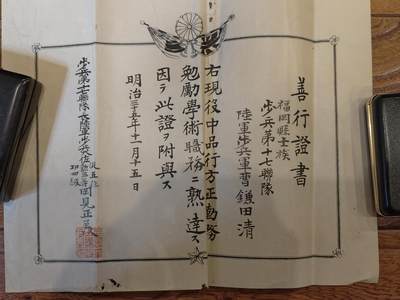 善行證書
福岡縣士族
步兵第十七聯隊
陸軍步兵軍曹鎌田清
右現役中品行方正勤務
勉勵學術職務ニ熟達ス
因テ此證ヲ附與ス
明治三十五年十一月十五日
步兵第十七聯隊長陸軍步兵